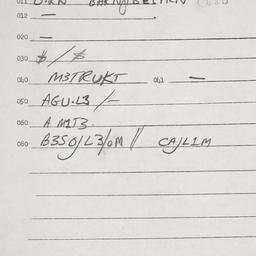 012 —
020 —
030 $/$
040 M3TRUKT 041 —
050 AGU.L3/—
060 A M1T3.
080 B3SO/L3/OM // CA/L1M